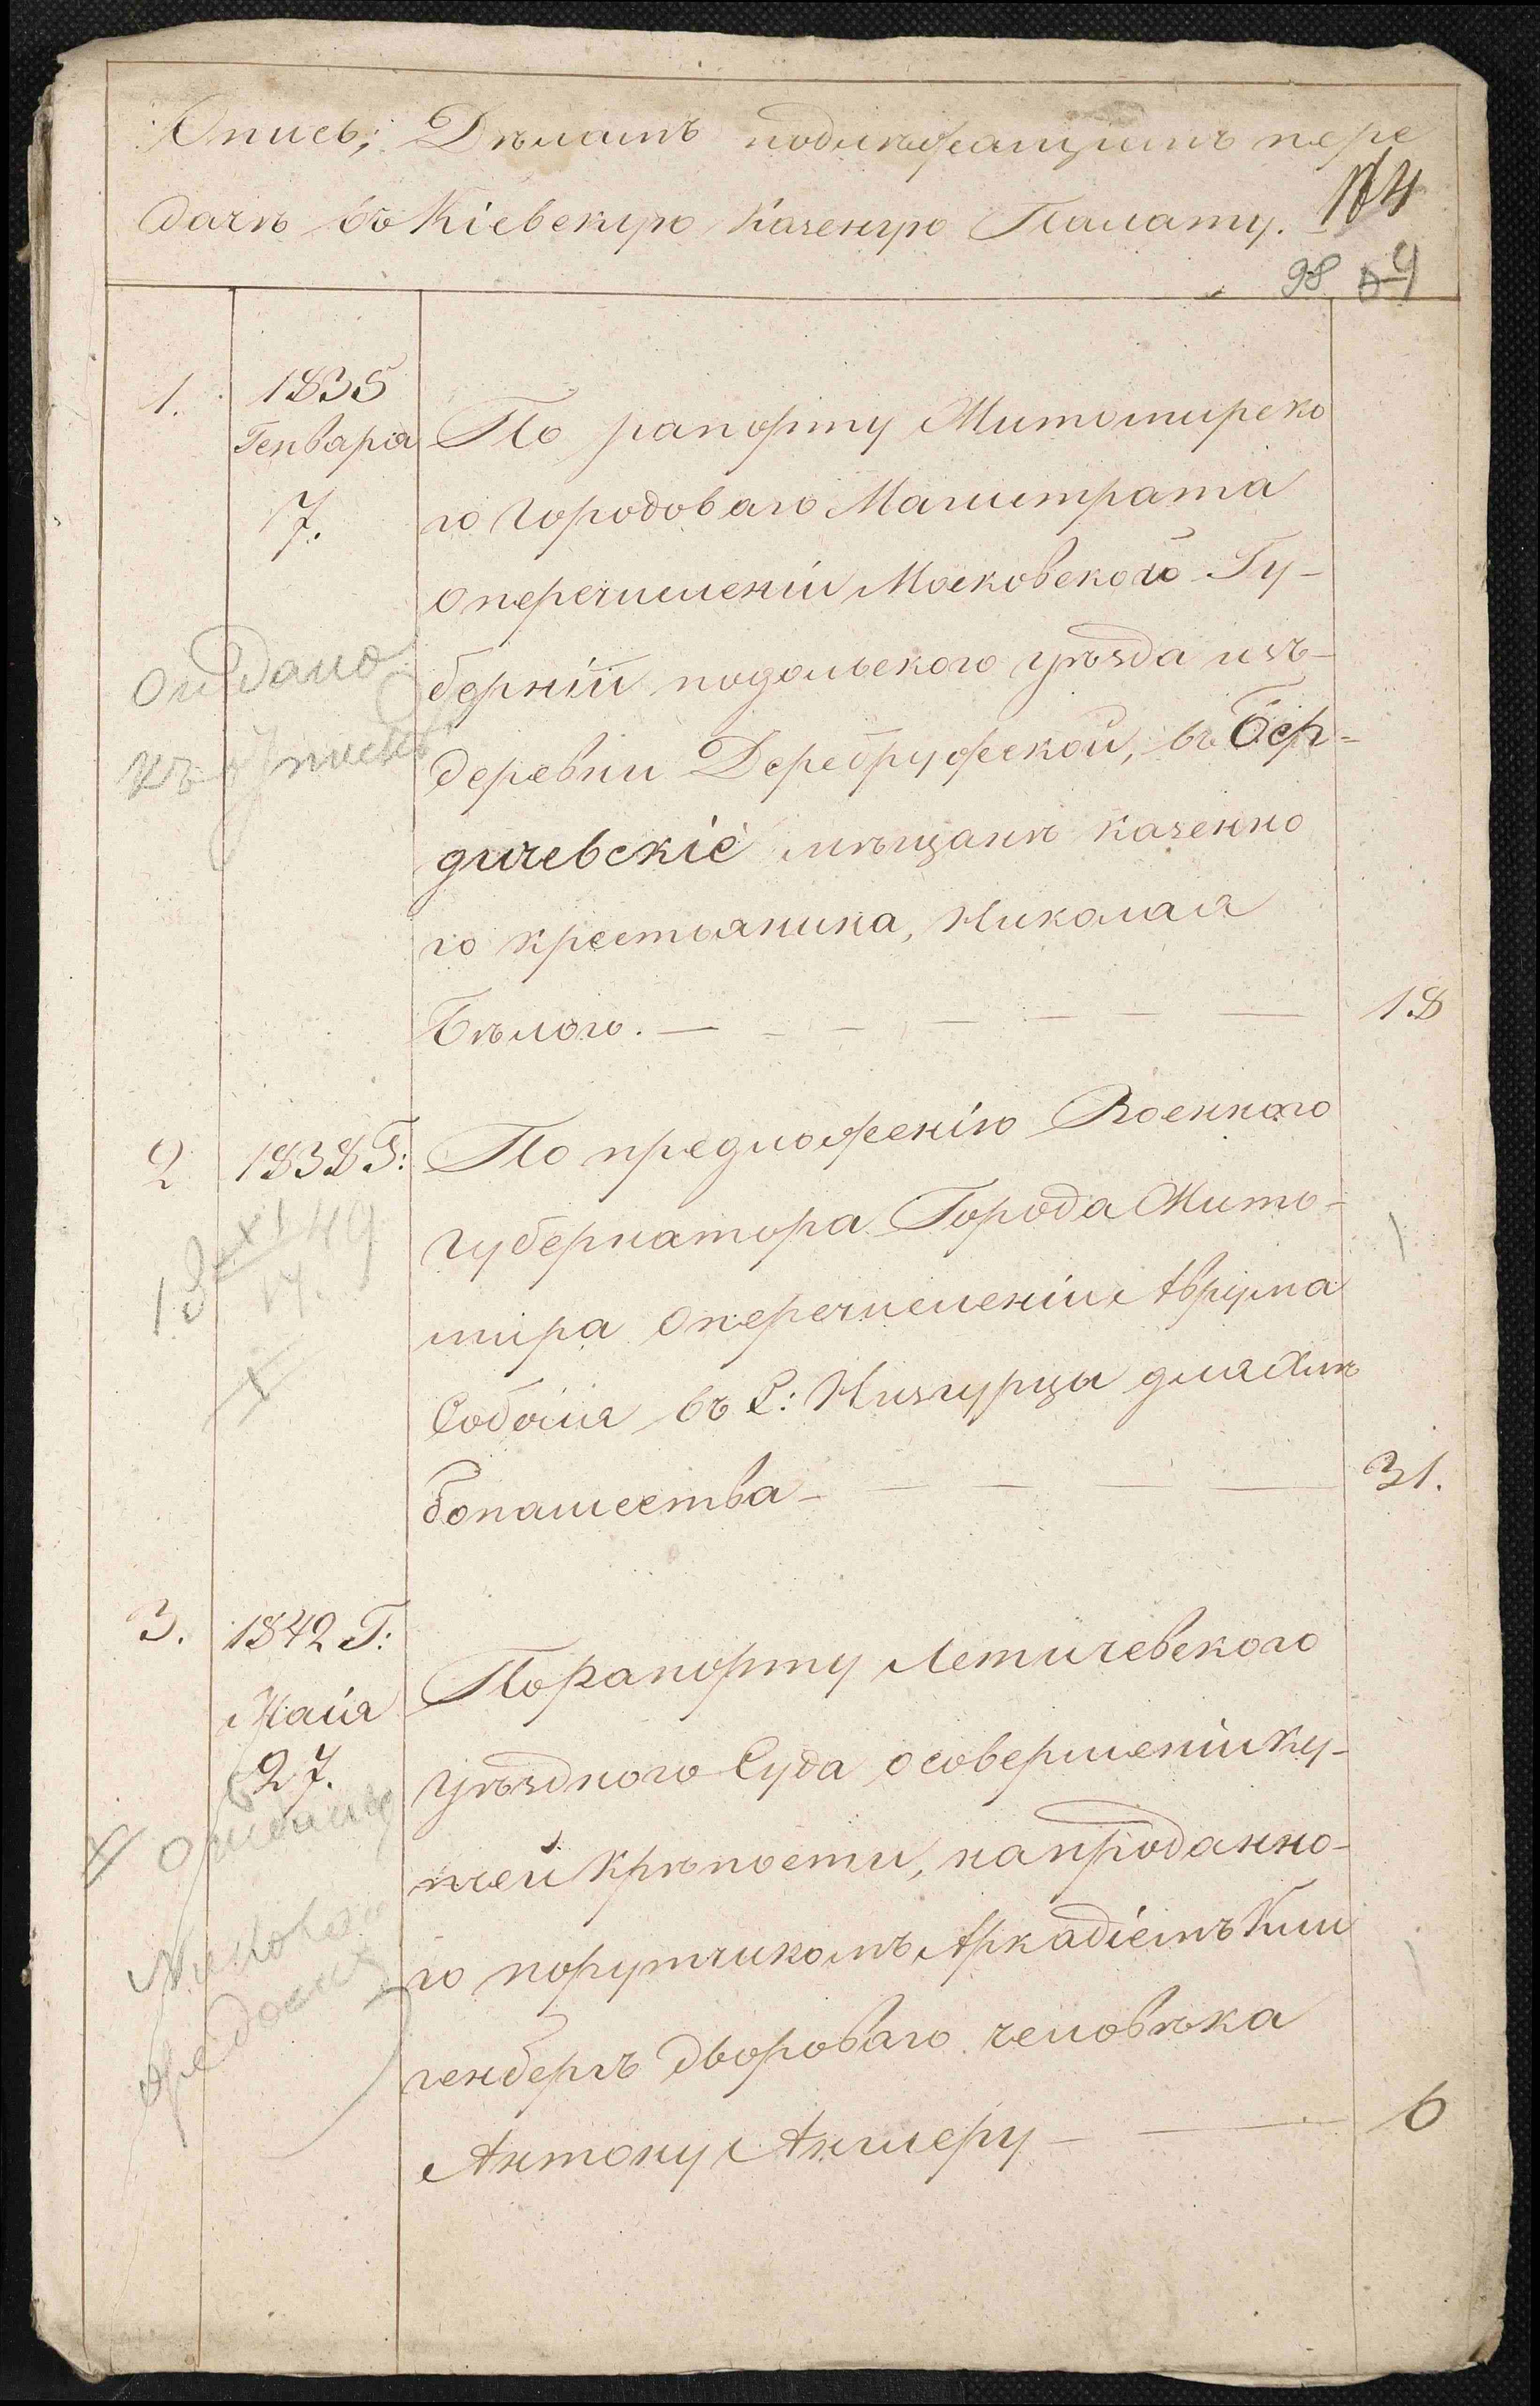 Опись; Дѣламъ подлѣжащимъ пере
дачѣ въ Кіевскую Казеную Палату.
98
1.
1835
Генваря
7.
По рапорту Житомирско
го Городоваго Магистрата
о перечисленіи Московского Гу-
берніи подольского уѣзда изъ-
деревни Деребружской, въ Бер-
дичевскіе мѣщанѣ казенно
го крестьянина, Николая
Бѣлого.
18
2
1838 Г:
По предложенію Военного
губернатора Города Жито-
мира о перечисленіи Аврума
Соболя въ С: Низгурцы для хлѣ
бопашества
31.
3.
1842 Г:
Маія
27.
По рапорту Летичевского
уѣздного Суда о совершеніи ку-
пчей крѣпости, на проданно-
го порутчикомъ Аркадіемъ Кли
генбергъ дворового человѣка
Антону Анцлеру
6